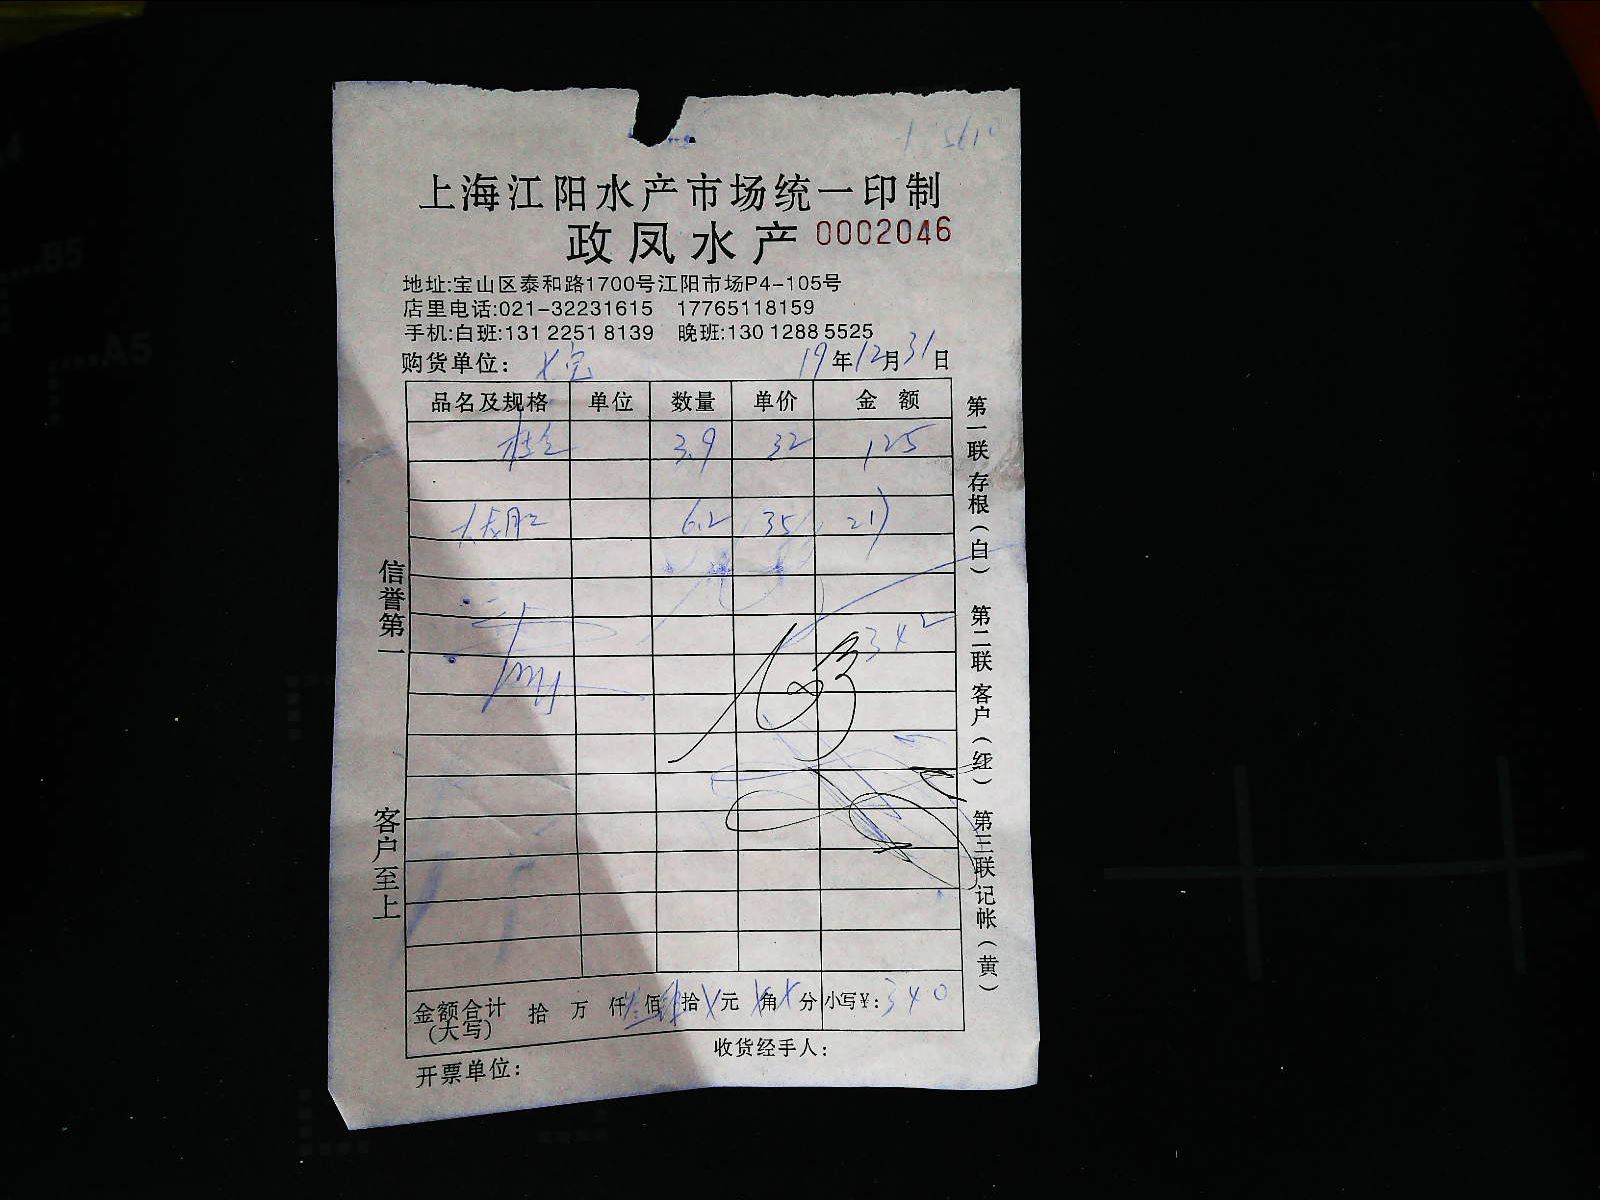 上海江阳水产市场统一印制
政凤水产 0002046
地址:宝山区泰和路1700号江阳市场P4-105号
店里电话:021-32231615 17765118159
手机:白班:131 2251 8139 晚班:130 1288 5525
购货单位: 19年12月31日
品名及规格 单位 数量 单价 金额
3.9 32 125
6.2 35 217
342
金额合计(大写) 拾 万 仟叁佰肆拾X元X角X分 小写¥:340
收货经手人:
开票单位:
信誉第一
客户至上
第一联 存根(自) 第二联 客户(红) 第三联 记帐(黄)